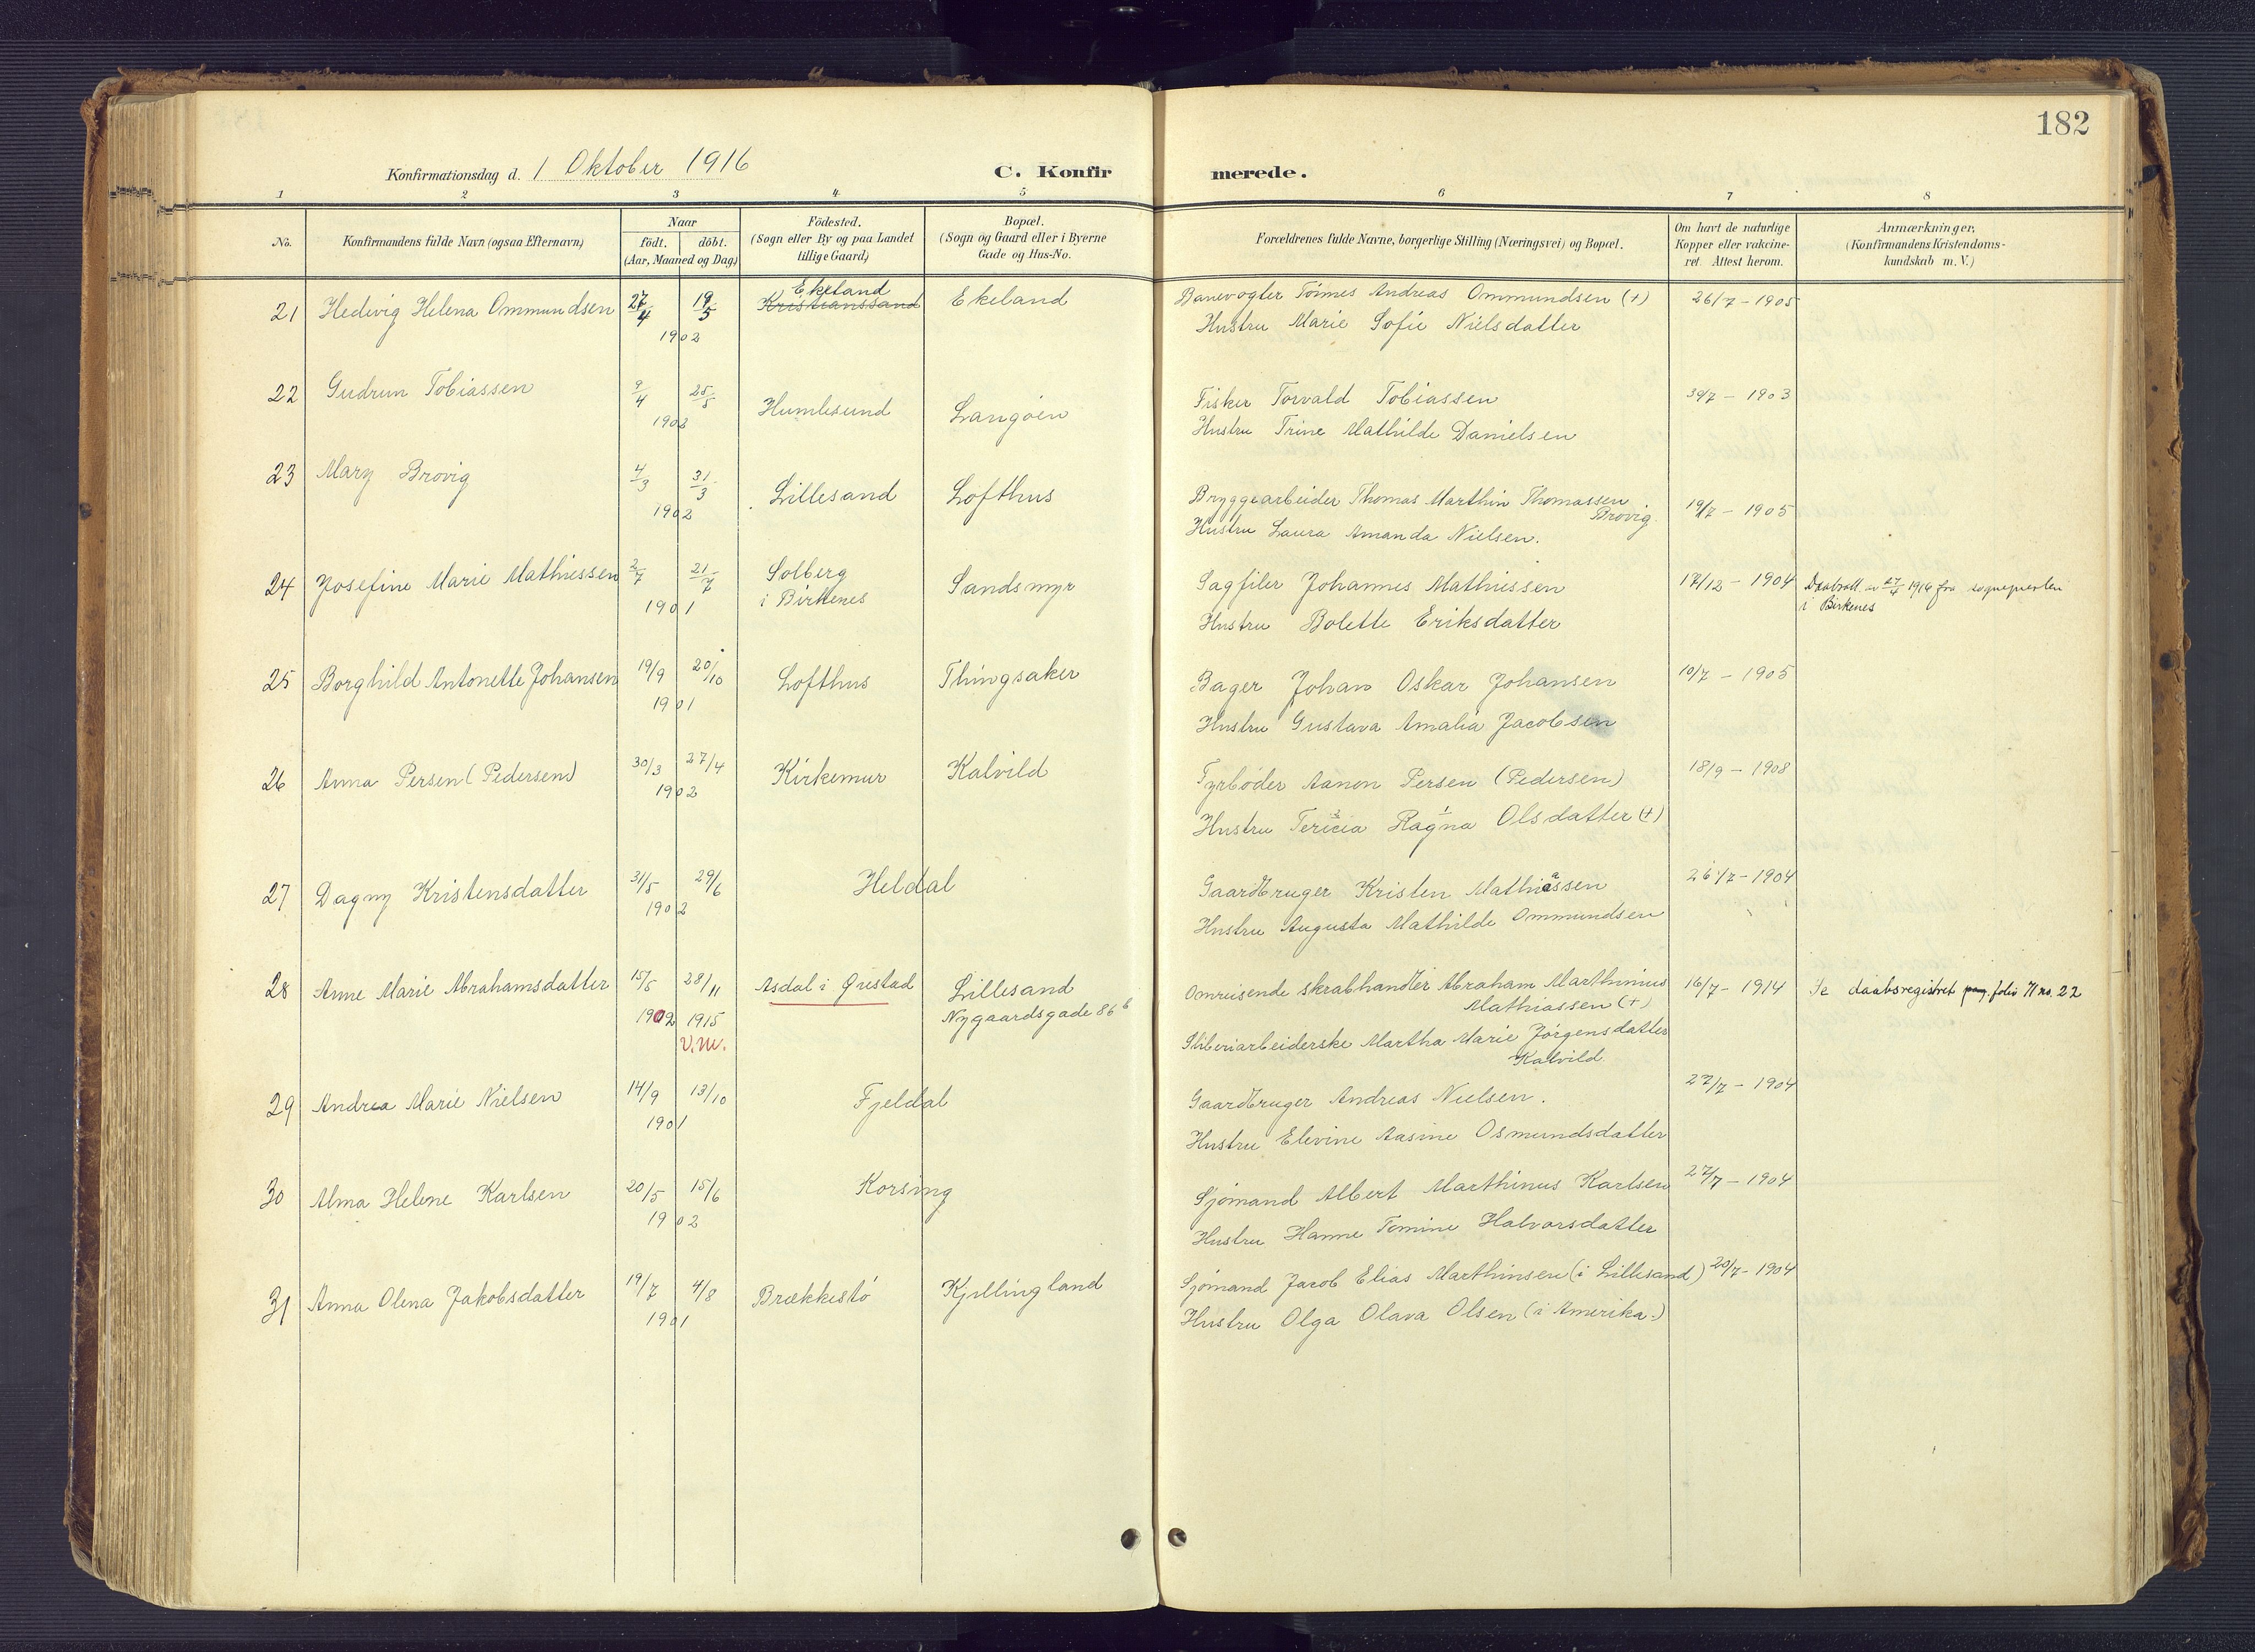 182
Konfirmationsdag d. 1 Oktober 1916 C. Konfirmerede.
1 2 3 4 5 6 7 8
No. Konfirmandens fulde Navn (ogsaa Efternavn) Naar födt. döbt. (Aar, Maaned og Dag) Födested. (Sogn eller By og paa Landet tillige Gaard) Bopæl. (Sogn og Gaard eller i Byerne Gade og Hus-No. Forældrenes fulde Navne, borgerlige Stilling (Næringsvei) og Bopæl. Om havt de naturlige Kopper eller vakcineret. Attest herom. Anmærkninger, (Konfirmandens Kristendomskundskab m. V.)
21 Hedevig Helena Ommundsen 27/4 19/5 Ekeland Kristianssand Ekeland Banevogter Tönnes Andreas Ommundsen (+) 26/7 - 1905
1902 Hustru Marie Sofie Nielsdatter
22 Gudrun Tobiassen 9/4 25/5 Humlesund Langöen Fisker Torvald Tobiassen 30/7 - 1903
1902 Hustru Trine Mathilde Danielsen
23 Mary Brovig 4/3 31/3 Lillesand Lofthus Bryggearbeider Thomas Marthin Thomassen Brovig. 19/7 - 1905
1902 Hustru Laura Amanda Nielsen.
24 Josefine Marie Mathiessen 2/7 21/7 Solberg i Birkenes Sandsmyr Sagfiler Johannes Mathiessen 17/12 - 1904 1916 fra sognepresten
1901 Hustru Bolette Eriksdatter i Birkenes
25 Borghild Antonette Johansen 19/9 20/10 Lofthus Thingsaker Bager Johan Oskar Johansen 10/7 - 1905
1901 Hustru Gustava Amalia Jacobsen
26 Anna Persen (Pedersen) 30/3 27/4 Kirkemur Kalvild Fyrböder Aanon Persen (Pedersen) 18/9 - 1908
1902 Hustru Tericia Ragna Olsdatter (+)
27 Dagny Kristensdatter 31/5 29/6 Heldal Gaardbruger Kristen Mathiassen 26/7 - 1904
1902 Hustru Augusta Mathilde Ommundsen
28 Anne Marie Abrahamsdatter 15/5 28/11 Asdal i Øiestad Lillesand Omreisende skrabhandler Abraham Marthinius 16/7 - 1914 Se daabsregistret pag. folio 71 no. 22
1902 1915 Nygaardsgade 86 b Mathiassen (+)
V.M. Sliberiarbeiderske Martha Marie Jörgensdatter
Kalvild
29 Andrea Marie Nielsen 14/9 13/10 Fjeldal Gaardbruger Andreas Nielsen. 27/7 - 1904
1901 Hustru Elevine Aasine Osmundsdatter
30 Alma Helene Karlsen 20/5 15/6 Korsing Sjömand Albert Marthinus Karlsen 27/7 - 1904
1902 Hustru Hanne Tomine Halvorsdatter
31 Anna Olena Jakobsdatter 19/7 4/8 Brækkestö Kjillingland Sjömand Jacob Elias Marthinsen (i Lillesand) 20/7 - 1904
1901 Hustru Olga Olava Olsen (i Amerika.)